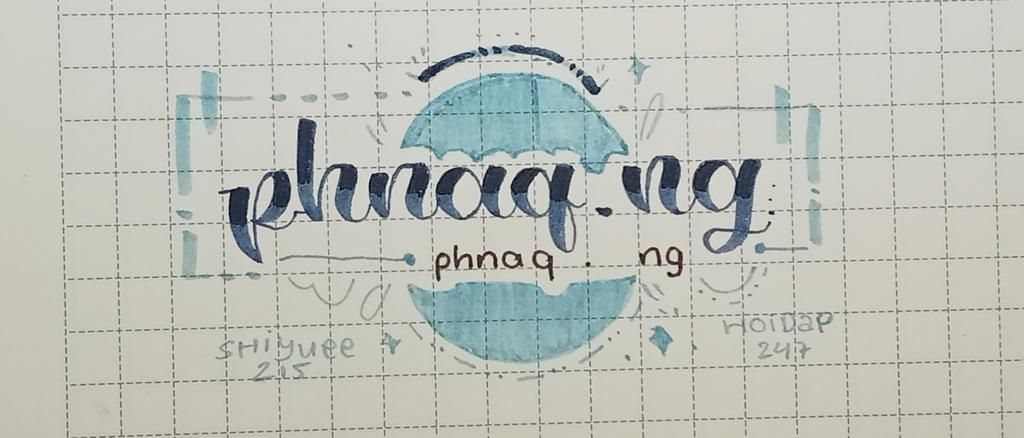 phnaq.ng
phnaq . ng
SHIyuee
215
HOIDap
247